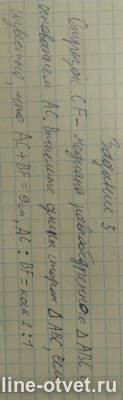 Задание 5
Отрезок CF - медиана равнобедренного ΔABC с
основанием AC. Вычислите длины сторон ΔABC, если
известно, что AC + BF = 9см, AC : BF = как 2 : 1
line-otvet.ru